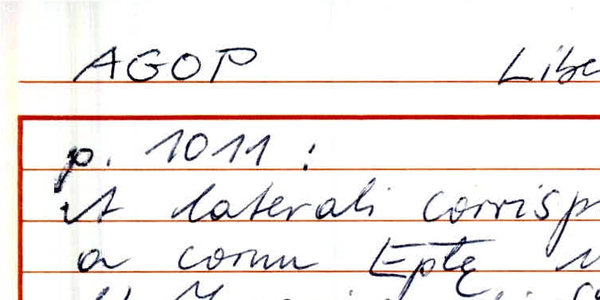 AGOP Libe
p. 1011 :
it laterali corrisp
a cornu Eptę